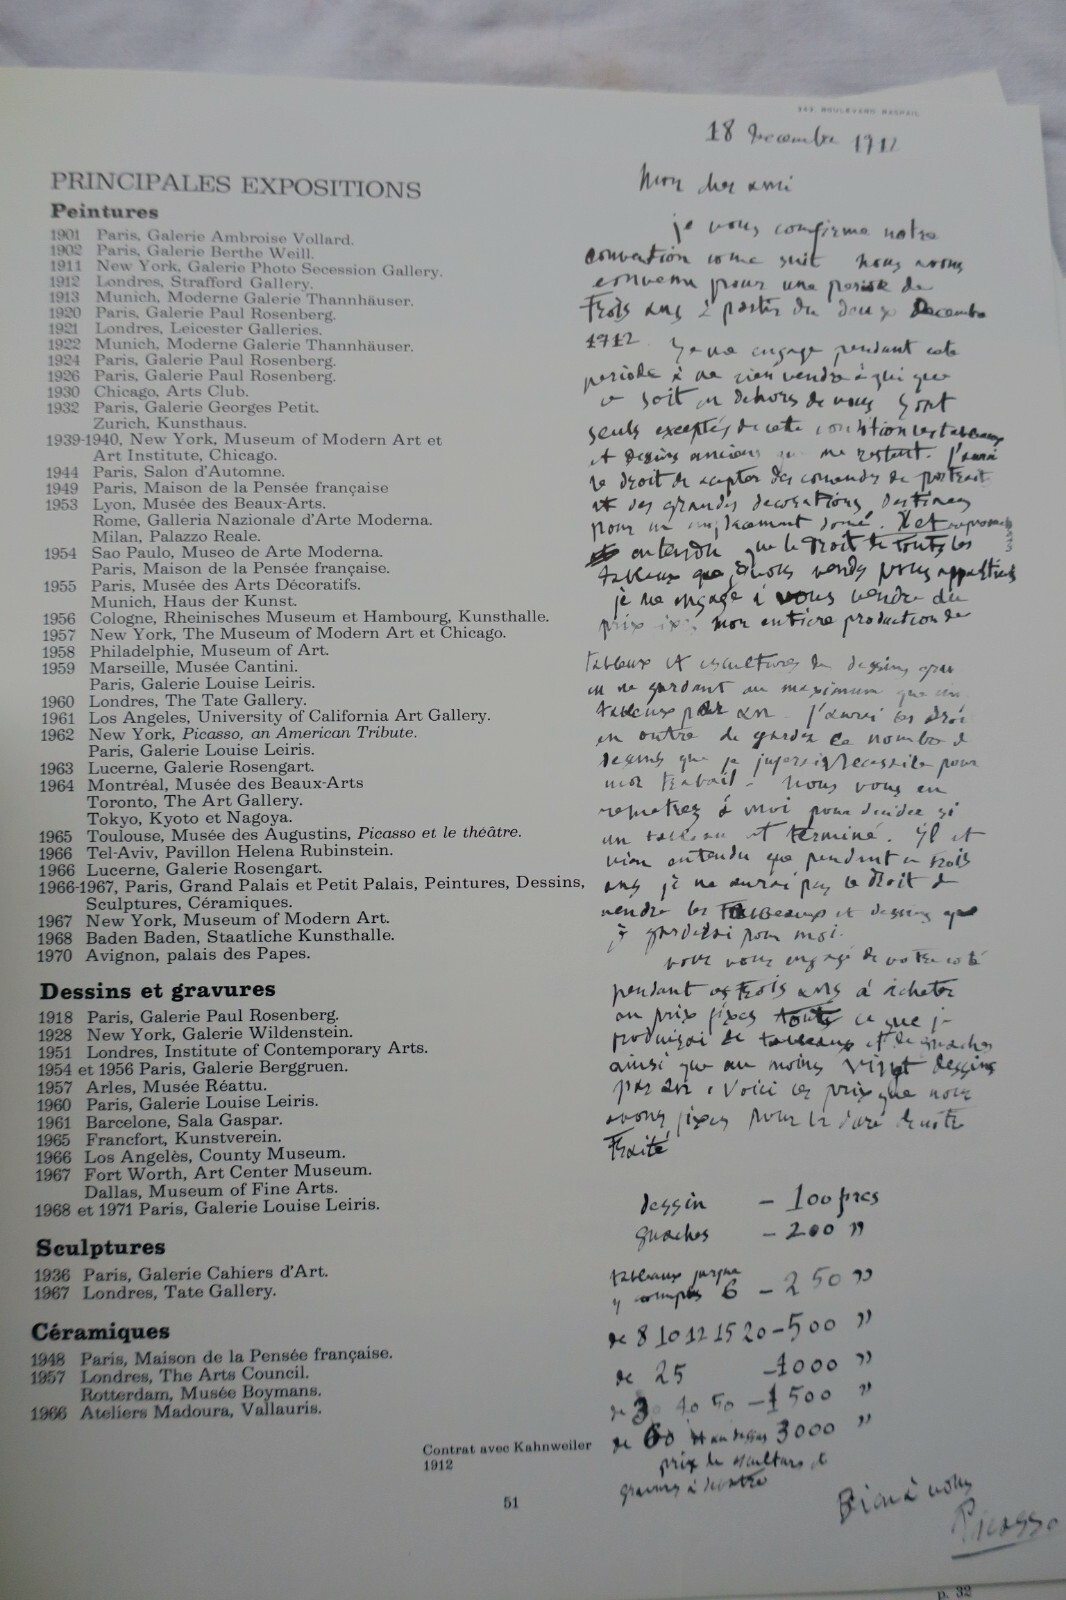 PRINCIPALES EXPOSITIONS
Peintures
1901 Paris, Galerie Ambroise Vollard.
1902 Paris, Galerie Berthe Weill.
1911 New York, Galerie Photo Secession Gallery.
1912 Londres, Strafford Gallery.
1913 Munich, Moderne Galerie Thannhäuser.
1920 Paris, Galerie Paul Rosenberg.
1921 Londres, Leicester Galleries.
1922 Munich, Moderne Galerie Thannhäuser.
1924 Paris, Galerie Paul Rosenberg.
1926 Paris, Galerie Paul Rosenberg.
1930 Chicago, Arts Club.
1932 Paris, Galerie Georges Petit.
Zurich, Kunsthaus.
1939-1940, New York, Museum of Modern Art et
Art Institute, Chicago.
1944 Paris, Salon d'Automne.
1949 Paris, Maison de la Pensée française
1953 Lyon, Musée des Beaux-Arts.
Rome, Galleria Nazionale d'Arte Moderna.
Milan, Palazzo Reale.
1954 Sao Paulo, Museo de Arte Moderna.
Paris, Maison de la Pensée française.
1955 Paris, Musée des Arts Décoratifs.
Munich, Haus der Kunst.
1956 Cologne, Rheinisches Museum et Hambourg, Kunsthalle.
1957 New York, The Museum of Modern Art et Chicago.
1958 Philadelphie, Museum of Art.
1959 Marseille, Musée Cantini.
Paris, Galerie Louise Leiris.
1960 Londres, The Tate Gallery.
1961 Los Angeles, University of California Art Gallery.
1962 New York, Picasso, an American Tribute.
Paris, Galerie Louise Leiris.
1963 Lucerne, Galerie Rosengart.
1964 Montréal, Musée des Beaux-Arts
Toronto, The Art Gallery.
Tokyo, Kyoto et Nagoya.
1965 Toulouse, Musée des Augustins, Picasso et le théâtre.
1966 Tel-Aviv, Pavillon Helena Rubinstein.
1966 Lucerne, Galerie Rosengart.
1966-1967, Paris, Grand Palais et Petit Palais, Peintures, Dessins,
Sculptures, Céramiques.
1967 New York, Museum of Modern Art.
1968 Baden Baden, Staatliche Kunsthalle.
1970 Avignon, palais des Papes.
Dessins et gravures
1918 Paris, Galerie Paul Rosenberg.
1928 New York, Galerie Wildenstein.
1951 Londres, Institute of Contemporary Arts.
1954 et 1956 Paris, Galerie Berggruen.
1957 Arles, Musée Réattu.
1960 Paris, Galerie Louise Leiris.
1961 Barcelone, Sala Gaspar.
1965 Francfort, Kunstverein.
1966 Los Angelès, County Museum.
1967 Fort Worth, Art Center Museum.
Dallas, Museum of Fine Arts.
1968 et 1971 Paris, Galerie Louise Leiris.
Sculptures
1936 Paris, Galerie Cahiers d'Art.
1967 Londres, Tate Gallery.
Céramiques
1948 Paris, Maison de la Pensée française.
1957 Londres, The Arts Council.
Rotterdam, Musée Boymans.
1966 Ateliers Madoura, Vallauris.
Contrat avec Kahnweiler
1912
51
242 BOULEVARD RASPAIL
18 Decembre 1912
Mon cher ami
je vous confirme notre
convention come suit nous avons
convenu pour une periode de
trois ans à partir du deux Decembre
1912. Je me engage pendant cete
periode à ne rien vendre à qui que
ce soit en dehors de vous Sont
seuls exceptés de cette condition les tableaux
et dessins anciens qui me restent. j'aurai
le droit de accepter des comandes de portraits
et des grandes decorations destinees
pour un emplacement donné. Il et
entendu que le droit de toutes les
tableaux que je vous vends vous appartient
je me engage à vous vendre du
prix fixe mon entière production de
tableaux et esculptures de dessins
en ne gardant au maximum que cinq
tableaux par an. j'aurai le droit
en outre de garder ce nombre de
dessins que je jugerai Necessite pour
mon travail. Nous vous en
remetrez à moi pour decider si
un tableau et terminé. Il et
vien entendu que pendant ce trois
ans je ne aurai pas le droit de
vendre les tableaux et dessins que
je garderai pour moi.
vous vous engagé de votre coté
pendant ces trois ans à acheter
au prix fixes ce que je
produirai de tableaux et de guaches
ainsi que au moins vingt dessins
par an. Voici les prix que nous
avons fixes pour la duré de notre
Traité
dessin – 100 frcs
guaches – 200 "
tableaux jusque
y compris 6 – 250 "
de 8 10 12 15 20 – 500 "
de 25 – 1000 "
de 30 40 50 – 1500 "
de 60 et au dessus 3000 "
prix de esculturs et
gravurs à debatre
Bien à vous
Picasso
p. 32